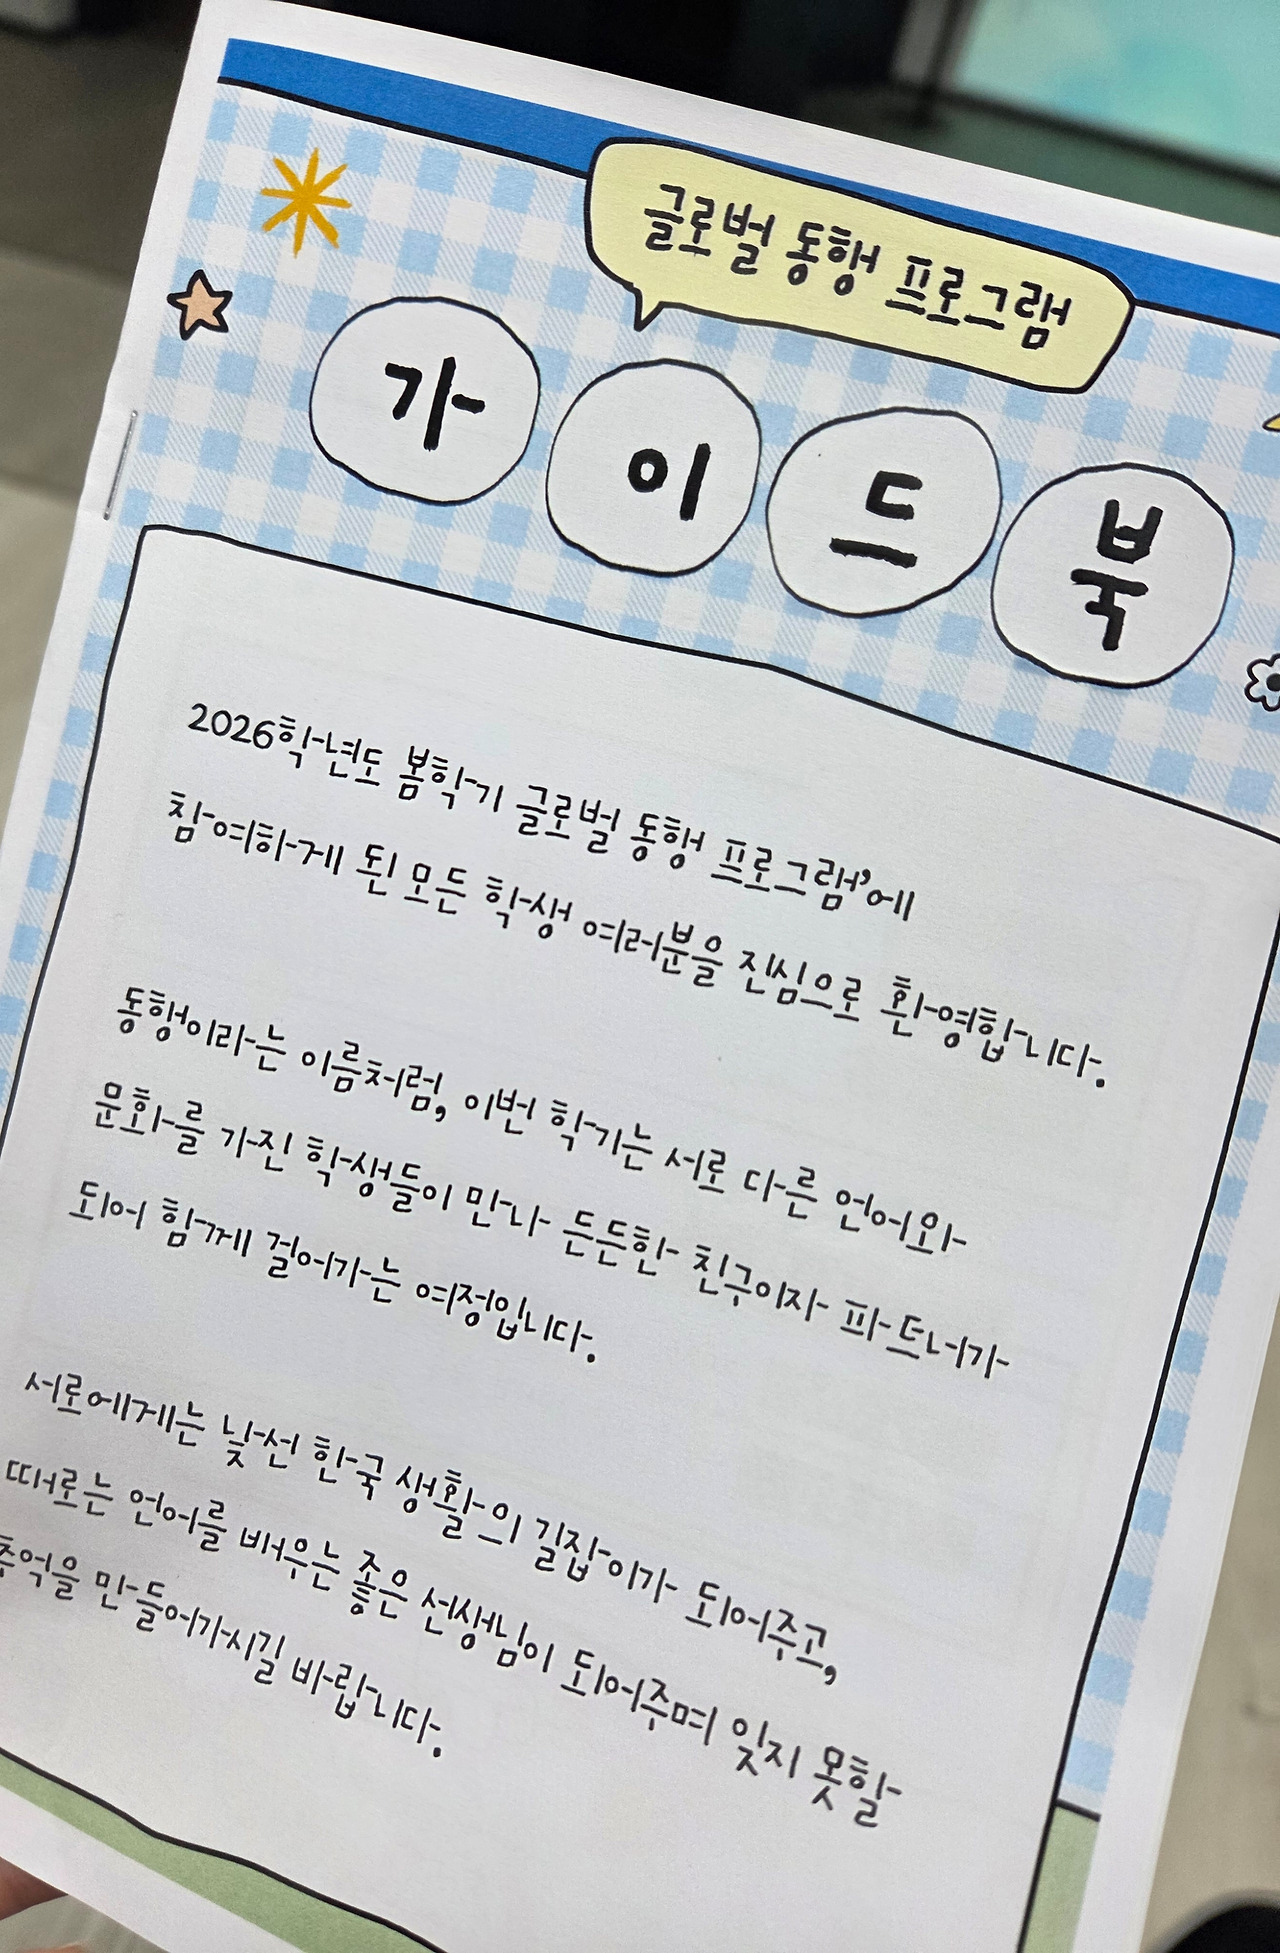 글로벌 동행 프로그램
가이드북
2026학년도 봄학기 글로벌 동행 프로그램'에
참여하게 된 모든 학생 여러분을 진심으로 환영합니다.
동행이라는 이름처럼, 이번 학기는 서로 다른 언어와
문화를 가진 학생들이 만나 든든한 친구이자 파트너가
되어 함께 걸어가는 여정입니다.
서로에게는 낯선 한국 생활의 길잡이가 되어주고,
때로는 언어를 배우는 좋은 선생님이 되어주며 잊지 못할
추억을 만들어가시길 바랍니다.